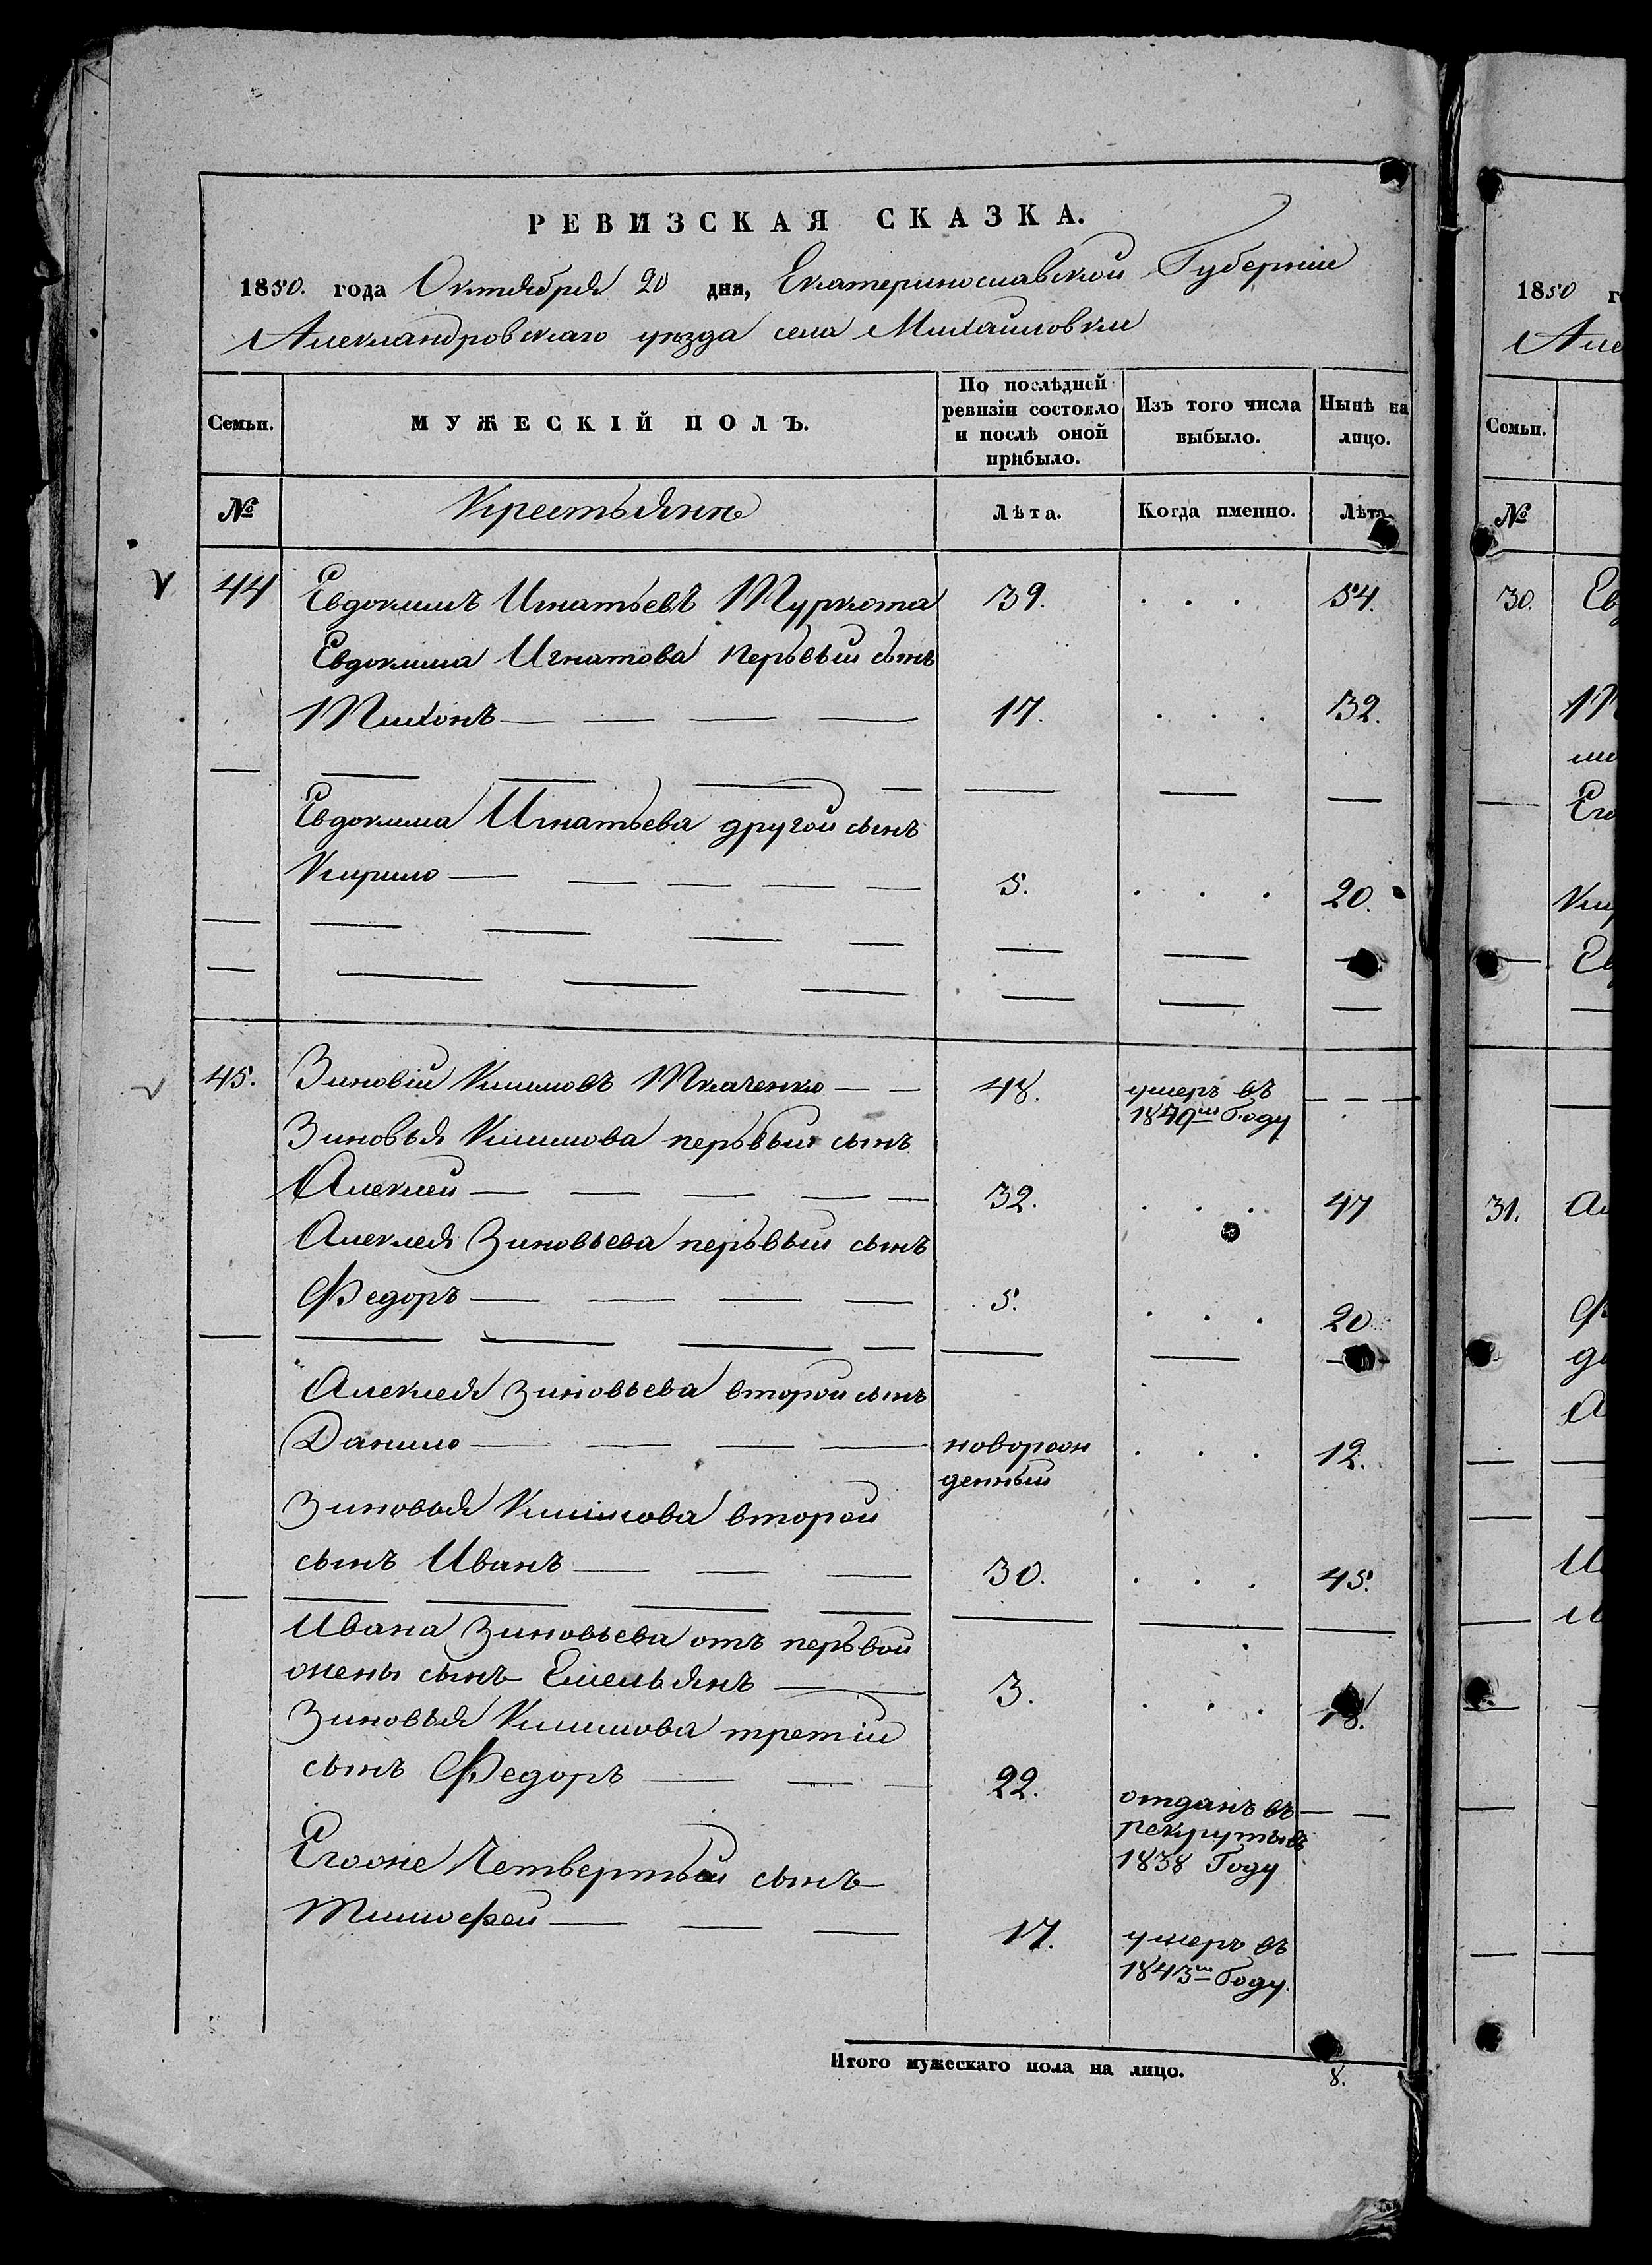 РЕВИЗСКАЯ СКАЗКА.
1850. года Октября 20 дня, Екатеринославской Губернии
Александровскаго уезда села Михайловки
Семьи. МУЖЕСКІЙ ПОЛЪ. По послѣдней ревизіи состояло и послѣ оной прибыло. Изъ того числа выбыло. Нынѣ на лицо.
№ Крестьяне Лѣта. Когда именно. Лѣта.
44 Евдокимъ Игнатьевъ Туркота 39. . . . 54.
Евдокима Игнатова первый сынъ
Тихонъ — — — — 17. . . . 32.
Евдокима Игнатьева другой сынъ
Кирило — — — — — 5. . . . 20.
45. Зиновій Климовъ Ткаченко — — 48. умеръ въ — — —
1849м Году
Зиновья Климова первый сынъ
Алексей — — — — — 32. . . . 47
Алексея Зиновьева первый сынъ
Федоръ — — — — 5. . . . 20
Алексея Зиновьева второй сынъ
Данило — — — — новорож . . . 12.
денный
Зиновья Климова второй
сынъ Иванъ — — — 30. . . . 45.
Ивана Зиновьева отъ первой
жены сынъ Емельянъ — — 3. . . . 18.
Зиновья Климова третій
сынъ Федоръ — — — 22. отданъ въ — —
рекруты въ
1838 Году
Егоже Четвертый сынъ
Тимофей — — — 17. умеръ въ
1843м Году.
Итого мужескаго пола на лицо. 8.
1850 г
Але
Семьи.
№
30. Ев
Ти
Его
Кир
Ев
31. Ал
Ф